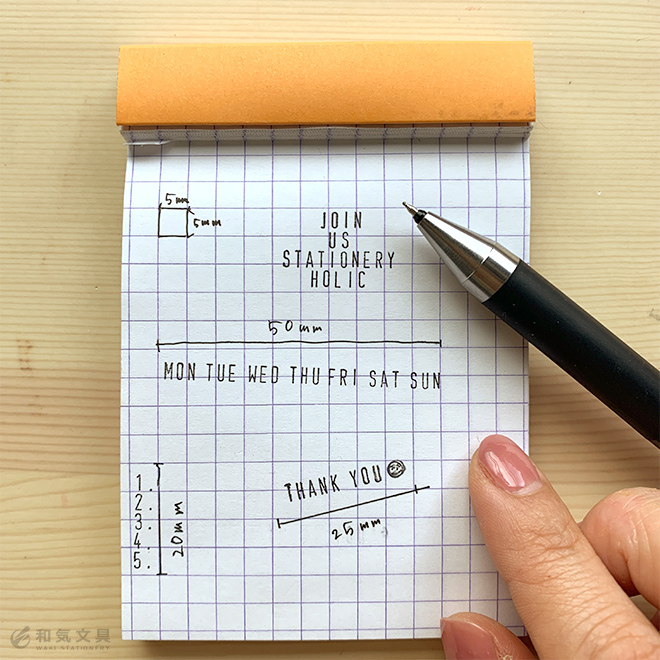 5mm
5mm
JOIN
US
STATIONERY
HOLIC
50mm
MON TUE WED THU FRI SAT SUN
1.
2.
3.
4.
5.
20mm
THANK YOU
25mm
和気文具
WAKI STATIONERY